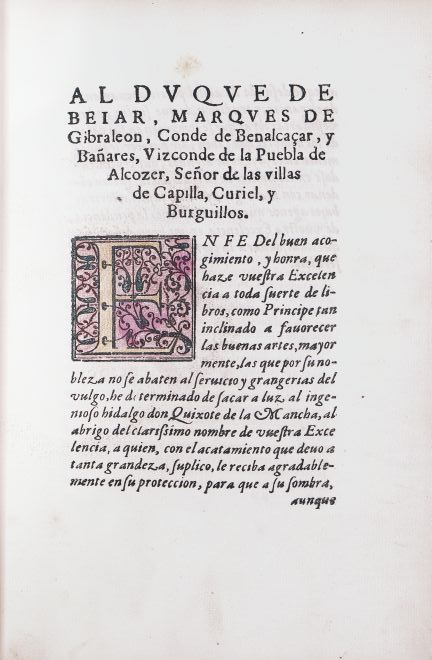 AL DVQVE DE
BEIAR, MARQVES DE
Gibraleon, Conde de Benalcaçar, y
Bañares, Vizconde de la Puebla de
Alcozer, Señor de las villas
de Capilla, Curiel, y
Burguillos.
EN FE Del buen aco-
gimiento, y honra, que
haze vueſtra Excelen
cia a toda ſuerte de li-
bros, como Principe tan
inclinado a fauorecer
las buenas artes, mayor
mente, las que por ſu no-
bleza no ſe abaten al ſeruicio y grangerias del
vulgo, he determinado de ſacar a luz al inge-
nioſo hidalgo don Quixote de la Mancha, al
abrigo del clariſsimo nombre de vueſtra Exce
lencia, a quien, con el acatamiento que deuo a
tanta grandeza, ſuplico, le reciba agradable-
mente en ſu proteccion, para que a ſu ſombra,
aunque